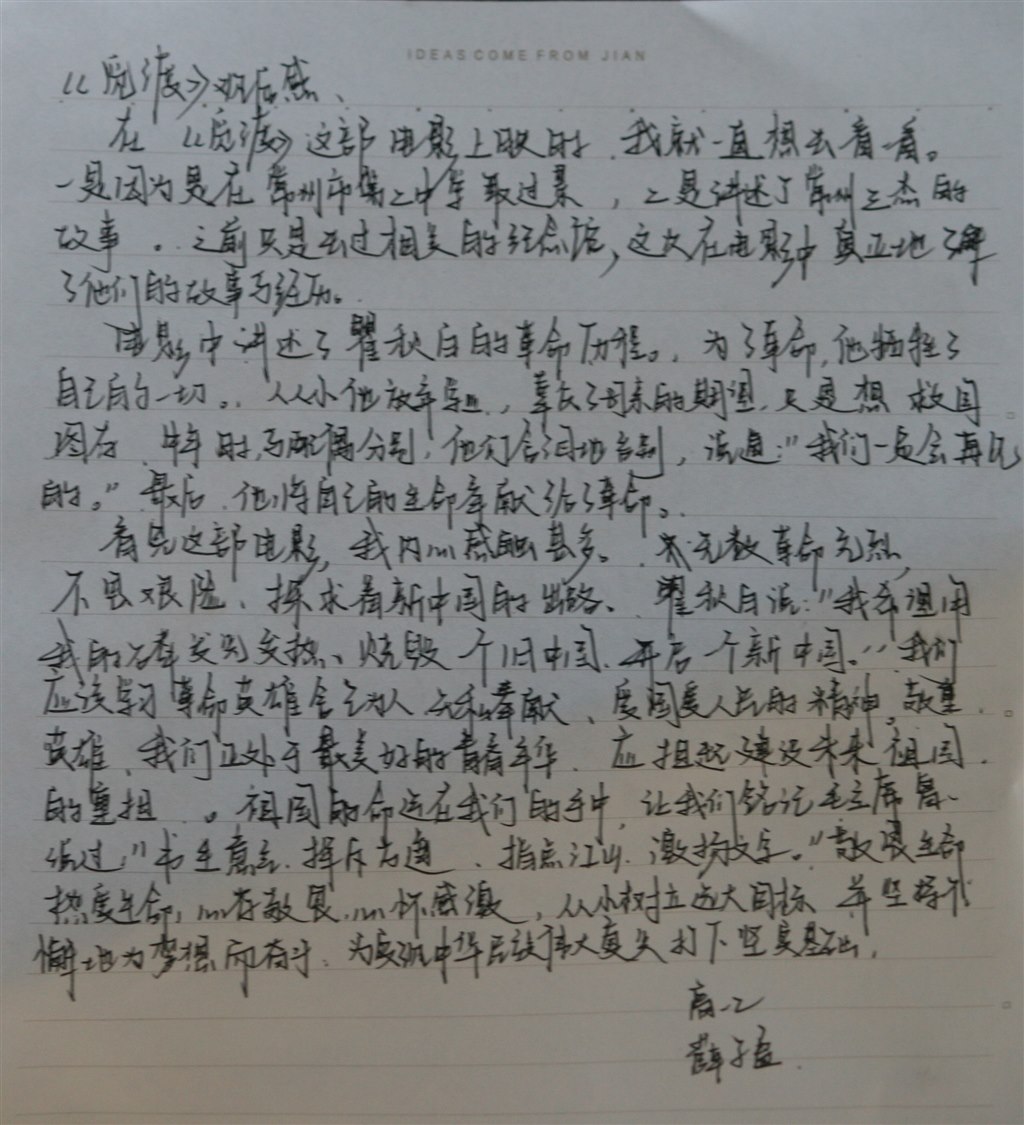 IDEAS COME FROM JIAN
《觅渡》观后感、
在《觅渡》这部电影上映时,我就一直想去看看。
一是因为是在常州市第二中学取过景,二是讲述了常州三杰的
故事。之前只是去过相关的纪念馆,这次在电影中真正地了解
了他们的故事与经历。
电影中讲述了瞿秋白的革命历程。为了革命,他牺牲了
自己的一切。从小他放弃学业,辜负了母亲的期望,只是想救国
图存,与配偶分别,他们含泪地告别,说道:"我们一定会再见
的。"最后,他将自己的生命奉献给了革命。
看完这部电影,我内心感触甚多。无数革命先烈,
不畏艰险、探求着新中国的出路、瞿秋白说:"我希望用
我的青春发光发热、烧毁一个旧中国,开启一个新中国。"我们
应该学习革命英雄舍己为人、无私奉献、爱国爱人民的精神。敬重
英雄、我们正处于最美好的青春年华、应担起建设未来祖国
的重担。祖国的命运在我们的手中,让我们铭记毛主席曾
说过:"书生意气、挥斥方遒、指点江山、激扬文字。"敬畏生命
热爱生命,心存敬畏,心怀感激,从小树立远大目标,并坚持不
懈地为梦想而奋斗、为实现中华民族伟大复兴打下坚实基础。
高一2
薛子益